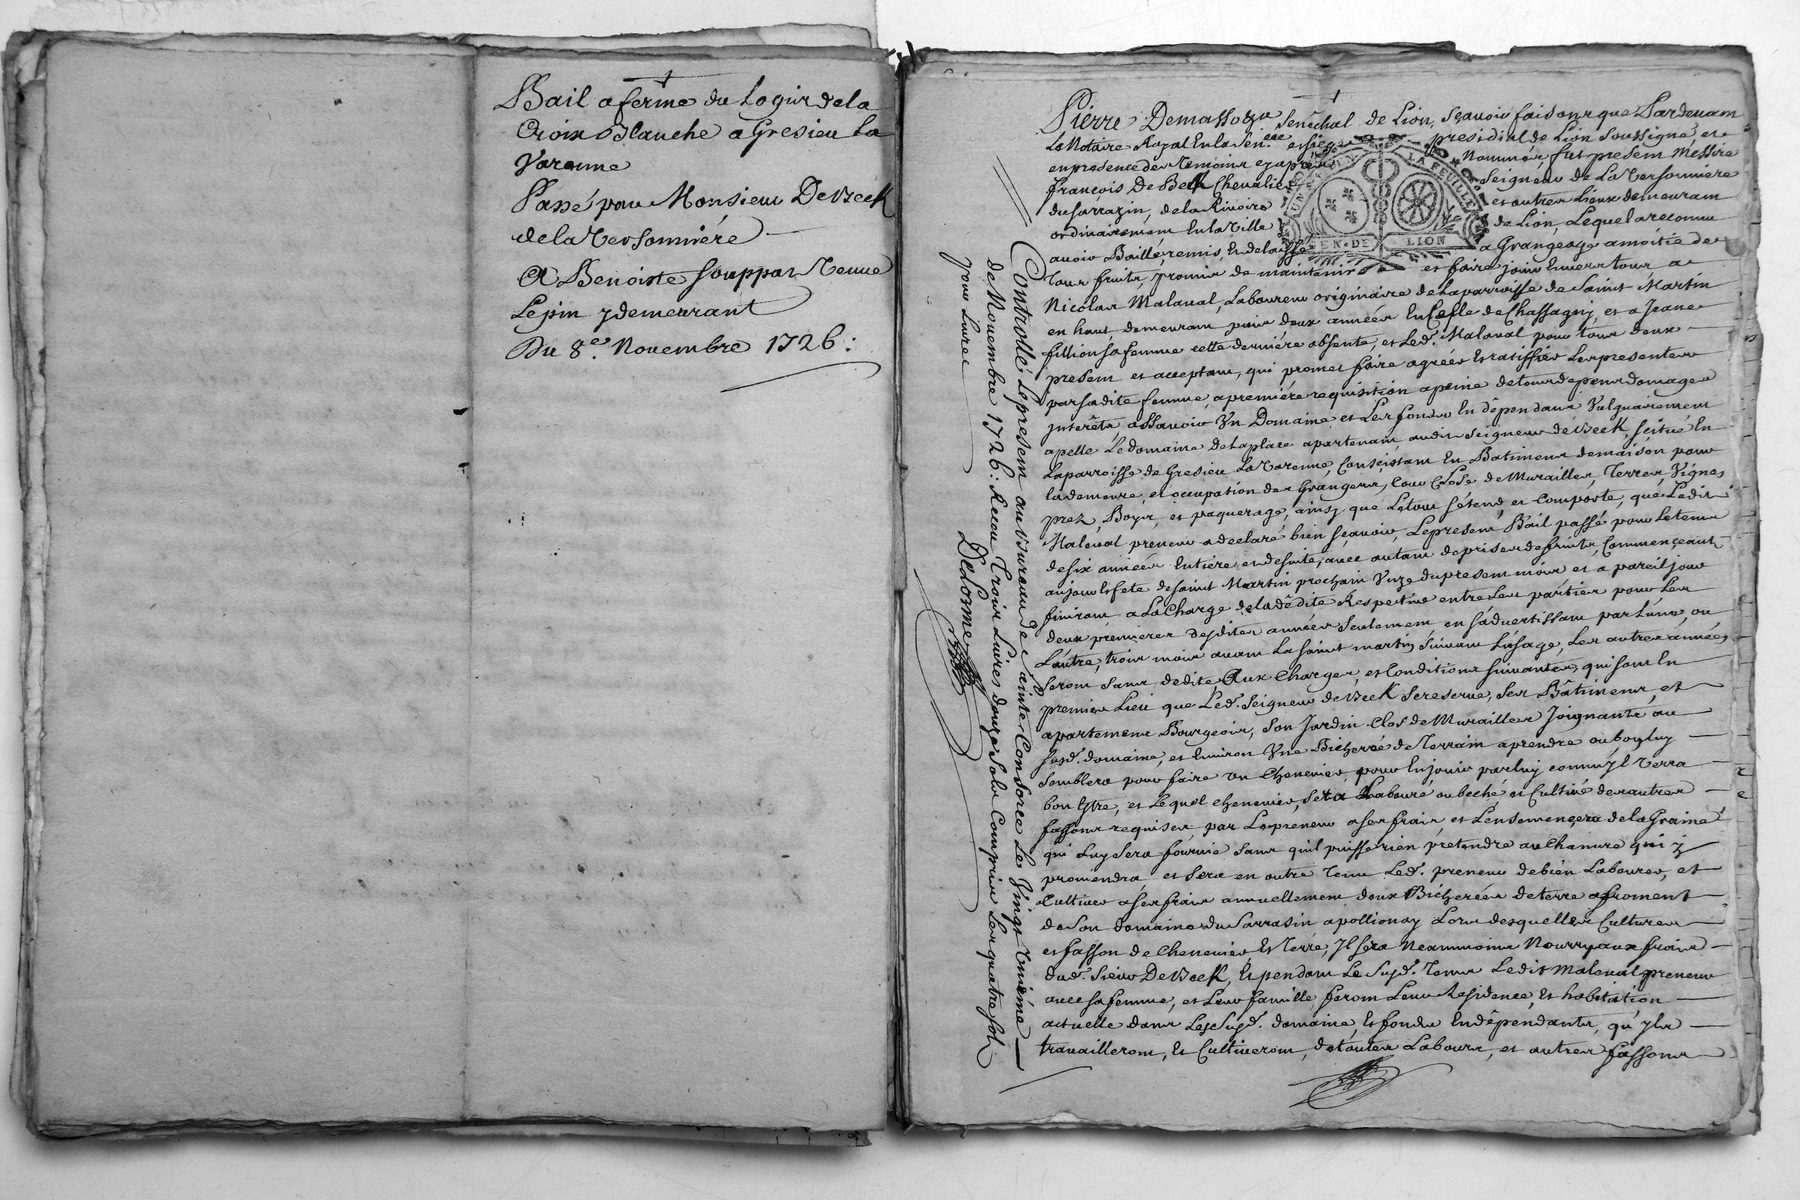 Bail a ferme du Logis de la
Croix Blanche a Gresieu la
Varenne
Passé par Monsieur De Beck
de la Versonniere
A Benoiste Souppat Veuve
Lepin y demeurant
Du 8e. Novembre 1726:
Pierre Demassso Senéchal de Lion, Sçavoir faisons que Pardevant
Le Notaire Royal En la Sen.cée et siege presidial de Lion Soussigné et
en presence des temoins cy apres Nommés, fut present Messire
françois De Beck Chevalier Seigneur de La Versonniere
du Sarrazin, de la Riviore et autres Lieux demeurant
ordinairement En la Ville de Lion, Lequel a reconnu
avoir Baillé, remis, Et delaissé a Grangeage a moitié de
Tous fruits, promis de maintenir et faire jouir Envers tous a
Nicolas Malaval, Laboureur originaire de La parroisse de Saint Martin
en haut, demeurant puis deux années En Celle de Chassagny, et a Jeane
fillion sa femme cette derniére absente, et Led. Malaval pour tous deux
present et acceptant, qui promet faire agréer Et ratiffier Les presentes
par sa dite femme, a premiére requisition a peine de tous depens domages
interêts assavoir Un Domaine et Les fonds En dêpendans Vulgairement
apellé Le domaine de La place apartenant audit Seigneur de Beck, scitué En
La parroisse de Gresieu La Varenne, Consistant En Batimens de maison pour
la demeure, et occupation des Grangers, Cour Close de Murailles, Terres, Vignes
prez, Boys, et paquerage, ainsy que Le tout s'étend, et Comporte, que Ledit
Malaval preneur a declaré bien Sçavoir, Le present Bail passé pour Le tems
de six années Entiere, et de suite, avec autant de prises de fruits Commençeant
au jour Et fete de Saint Martin prochain Unze du present mois et a pareil jour
finiront, a La Charge de la dédite Respective entre Les partiés pour Les
deux premieres desdites années Seulement en s'advertissant par L'une, ou
L'autre, trois mois avant La Saint martin Suivant L'usage, Les autres années
Seront sans dedite Aux Charges, et Conditions Suivantes, qui sont En
premier Lieu que Led. Seigneur de Beck Se reserve, Ses Bâtimens, et
apartement Bourgeois, Son Jardin Clos de Murailles Joignants au
susd. domaine, et Environ Une Bicherée de Terrain a prendre ou bon luy
Semblera pour faire un Chenevier, pour En jouir par luy comm'jl Verra
bon Estre, et Lequel chenevier, Sera Labouré ou beché, et Cultivé des autres
fassons requises par Le preneur a ses frais, et L'ensemençera de la Graine
qui Luy Sera fournie Sans qu'il puisse rien pretendre au Chanvre qui y
proviendra et Sera en outre tenu Led. preneur de bién Labourer, et
Cultiver a ses frais annuellement deux Bicherées de terre a froment
de Son domaine du Sarrasin a pollionay Lors desquelles Cultures
et fasson de Chenevier, Et Terre, Jl sera Neanmoins Nourry aux frais
dud. Sieur De Beck, Et pendant Le Susd. Tems Ledit Malaval preneur
avec sa femme, et Leur famille feront Leur Residence, Et habitation
actuelle dans Les Susd. domaine, Et fonds En dépendants, qu'jls
travailleront, Et Cultiveront, de toutes Labours, et autres fassons
UN S
LA FEUILLE
GEN. DE LION
Controllé Le present au Bureau de Sainte Consorce Le Vingt Uniéme
de Novembre 1726: Receu Trois Livres douze Sols Compris Les quatre Sols
pour Livre Delorme